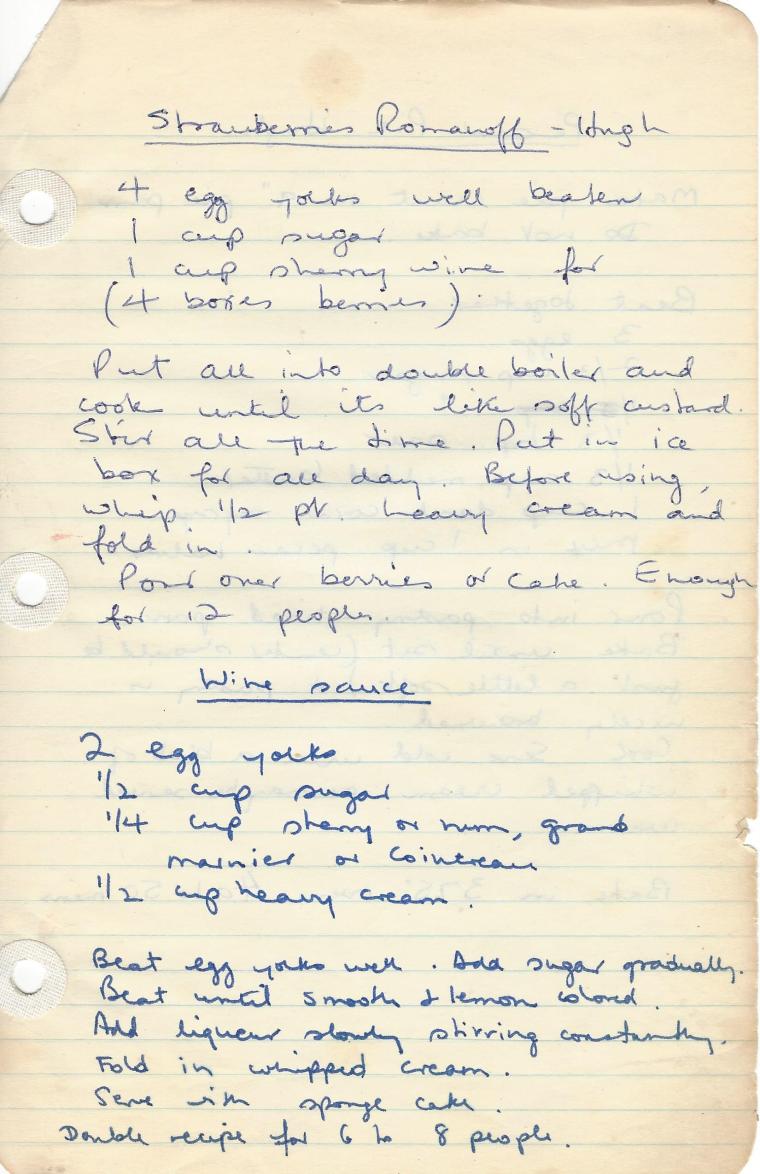 Strawberries Romanoff - Hugh
4 egg yolks well beaten
1 cup sugar
1 cup sherry wine for
(4 boxes berries)
Put all into double boiler and
cook until its like soft custard.
Stir all the time. Put in ice
box for all day. Before using,
whip 1/2 pt. heavy cream and
fold in.
Pour over berries or cake. Enough
for 12 people.
Wine sauce
2 egg yolks
1/2 cup sugar
1/4 cup sherry or rum, grand
marnier or Cointreau
1/2 cup heavy cream.
Beat egg yolks well. Add sugar gradually.
Beat until smooth & lemon colored.
Add liqueur slowly stirring constantly.
Fold in whipped cream.
Serve with sponge cake.
Double recipe for 6 to 8 people.